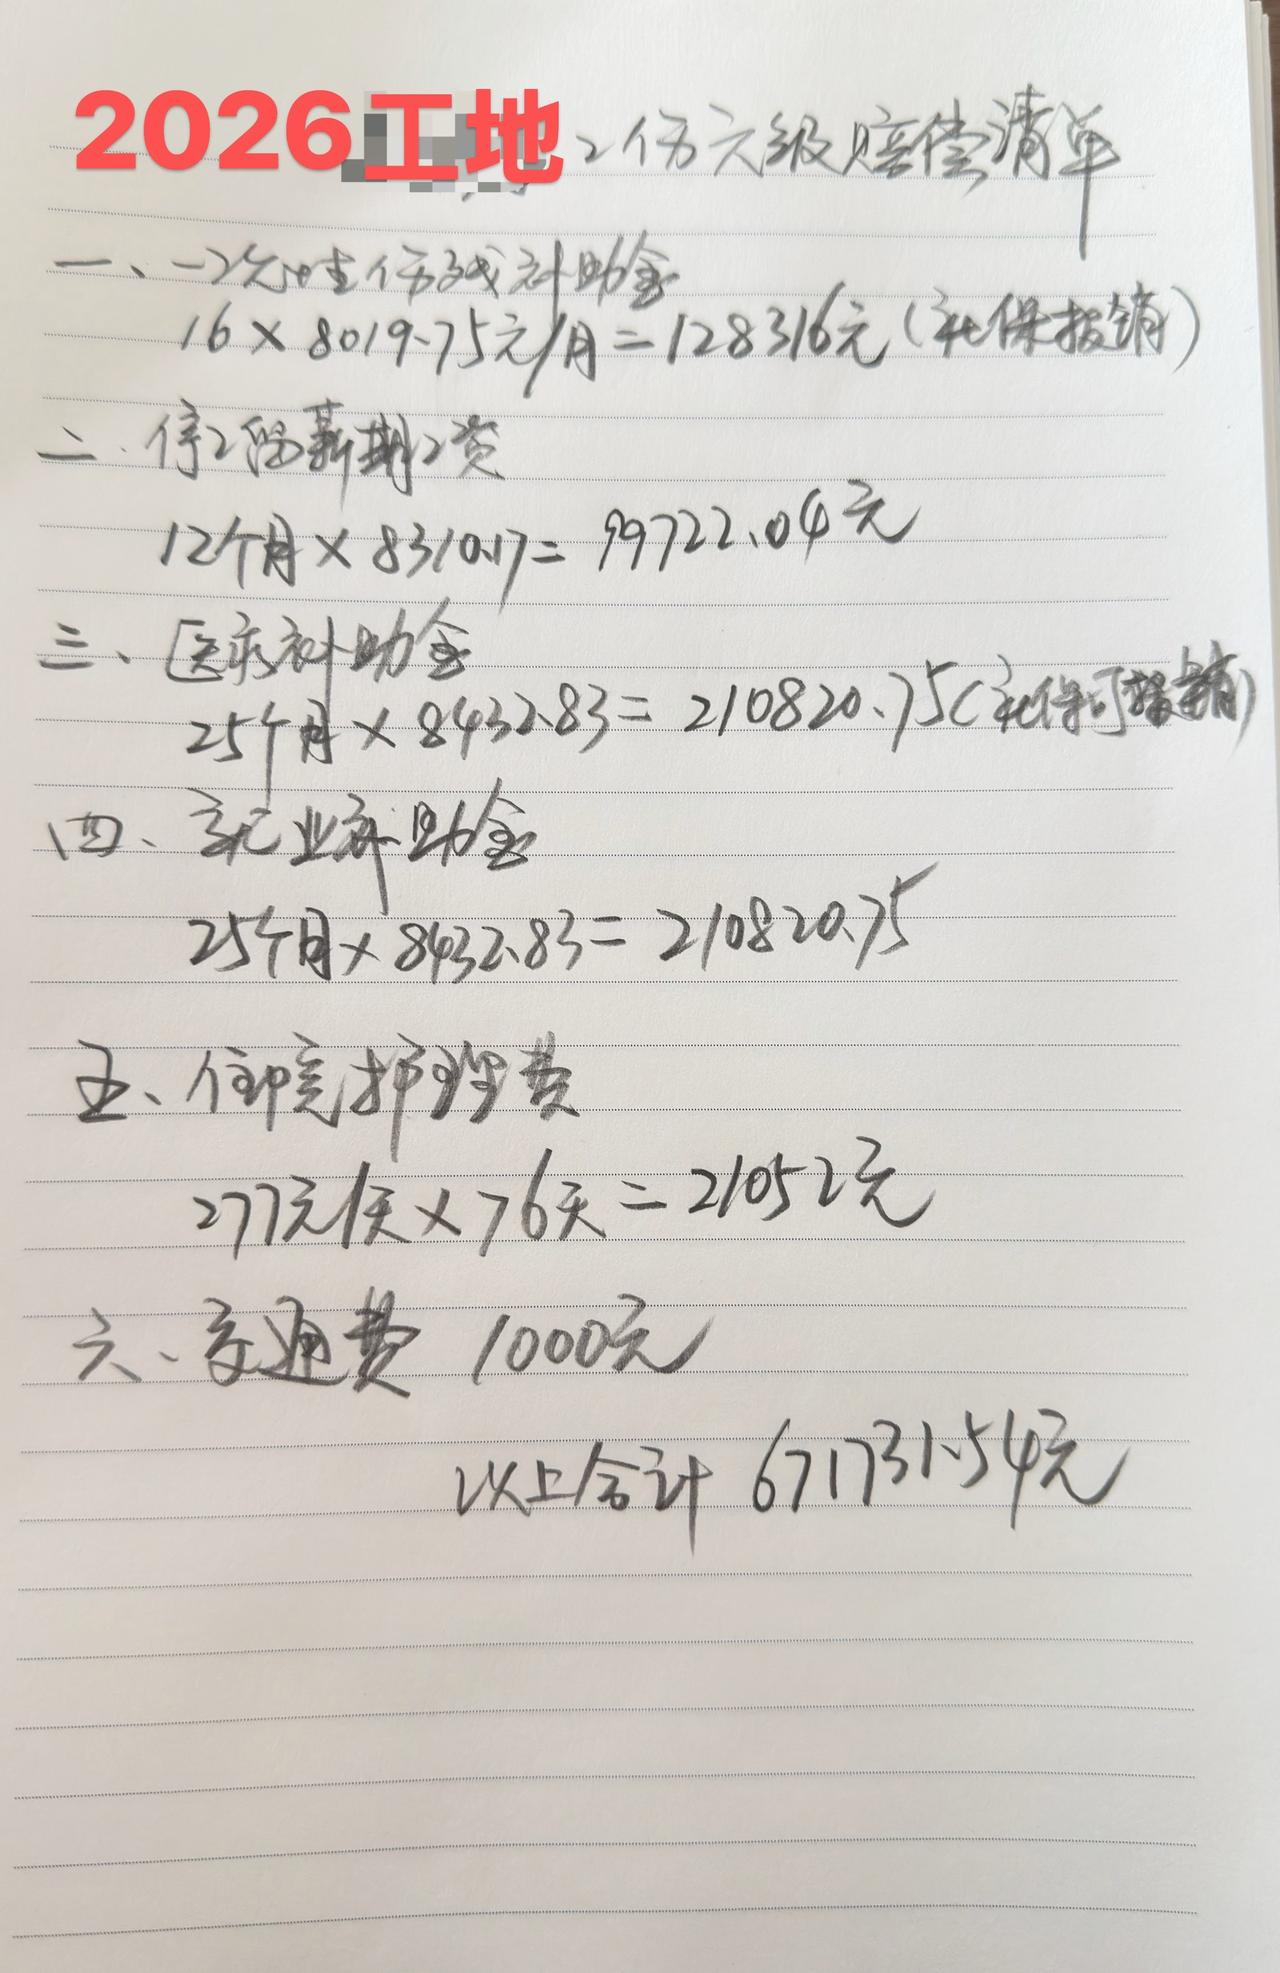 2026工地工伤六级赔偿清单
一、一次性伤残补助金
16×8019.75元/月=128316元(社保报销)
二.停工留薪期工资
12个月×8310.17=99722.04元
三、医疗补助金
25个月×8432.83=210820.75(社保可报销)
四、就业补助金
25个月×8432.83=210820.75
五、住院护理费
277元/天×76天=21052元
六、交通费 1000元
以上合计 671731.54元